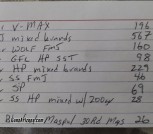 V-MAX 196
mixed brands 567
WOLF FMJ 160
GFL HP SST 98
HP mixed brands 229
SS FMJ 46
SP 69
SS HP mixed w/200gr 28
Magpul 30Rd Mags 26